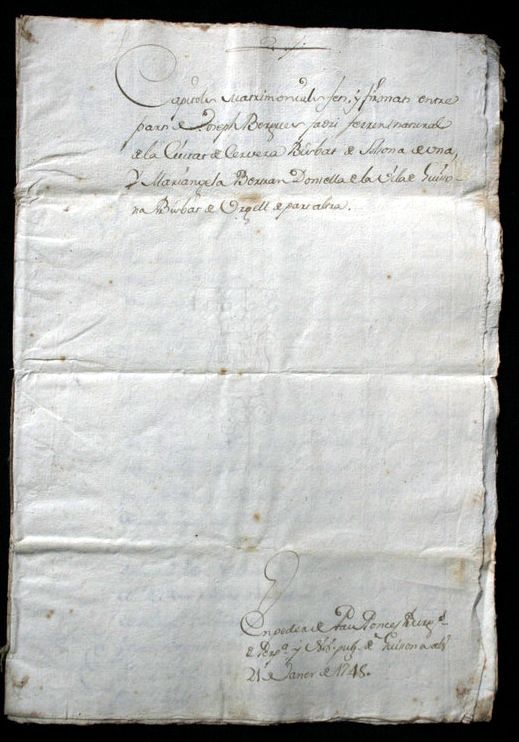 Capitols Matrimonials fets, y firmats entre
parts de Joseph Berques fadri ferrer natural
de la Ciutat de Cervera Bisbat de Solsona de una,
Y Mariangela Bertran Donsella de la Vila de Guiso-
na Bisbat de Orgell de part altra.
En poder de Pau Ponces
y Not. pub. de Guisona als
21 de Janer de 1748.